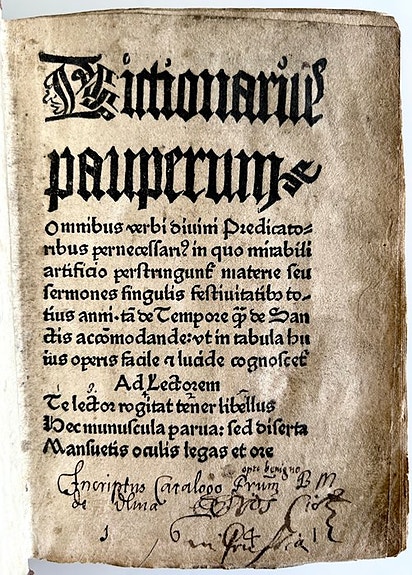 Dictionariuſ
pauperum
Omnibus verbi divini Predicato⸗
ribus pernecessari⁹ in quo mirabili
artificio perstringunt᷑ materie seu
sermones singulis festivitatibꝰ to⸗
tius anni·tā de Tempore q̄ꝫ de San
ctis accōmodande:vt in tabula hu
ius operis facile ⁊ lucide cognoscet᷑
Ad Lectorem
Te lector rogitat tener libellus
Hec munuscula parua: sed diserta
Mansuetis oculis legas et ore
Inscriptus Catalogo B M
de